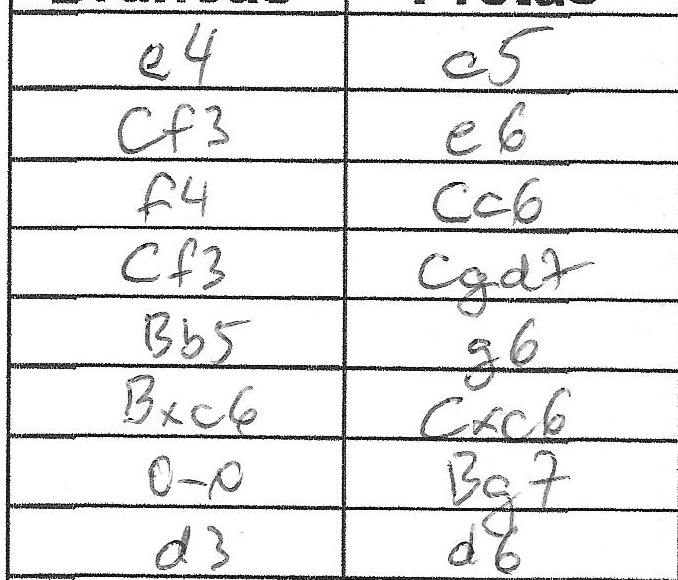 e4 c5
Cf3 e6
f4 Cc6
Cf3 Cgd7
Bb5 g6
Bxc6 Cxc6
0-0 Bg7
d3 d6